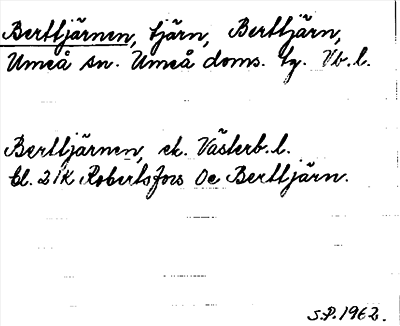 Berttjärnen, tjärn, Berttjärn,
Umeå sn. Umeå doms. tg. Vb. l.
Berttjärnen, ek. Västerb. l.
bl. 21K Robertsfors Oe Berttjärn.
S.P. 1962.